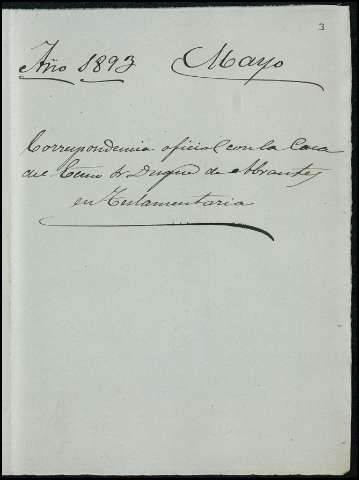 3
Año 1893 Mayo
Correspondencia oficial con la Casa
del Excmo Sr Duque de Abrantes
en Testamentaria